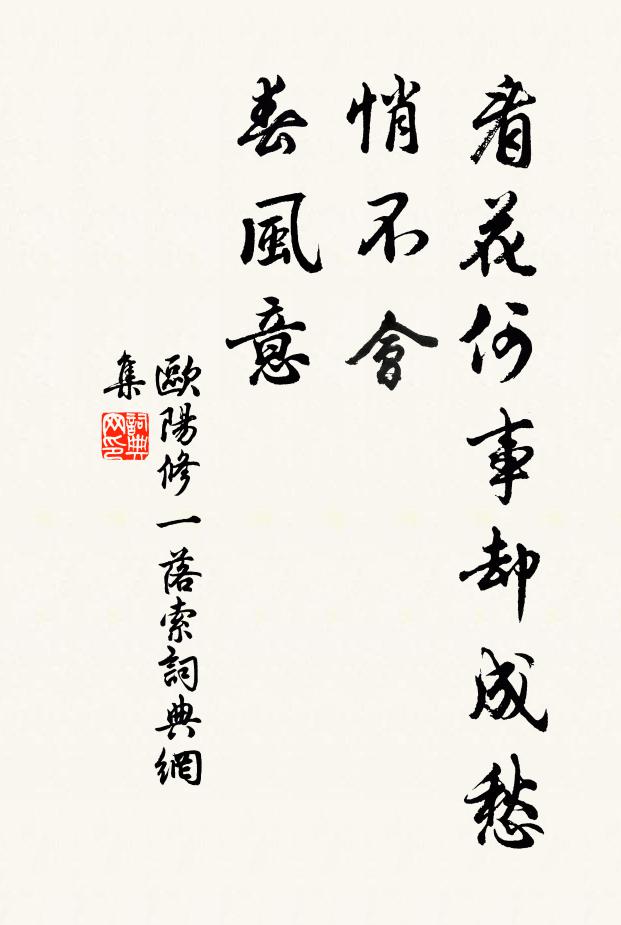 看花何事却成愁
悄不會
春風意
歐陽修一落索詞典網
集
詞典
网印